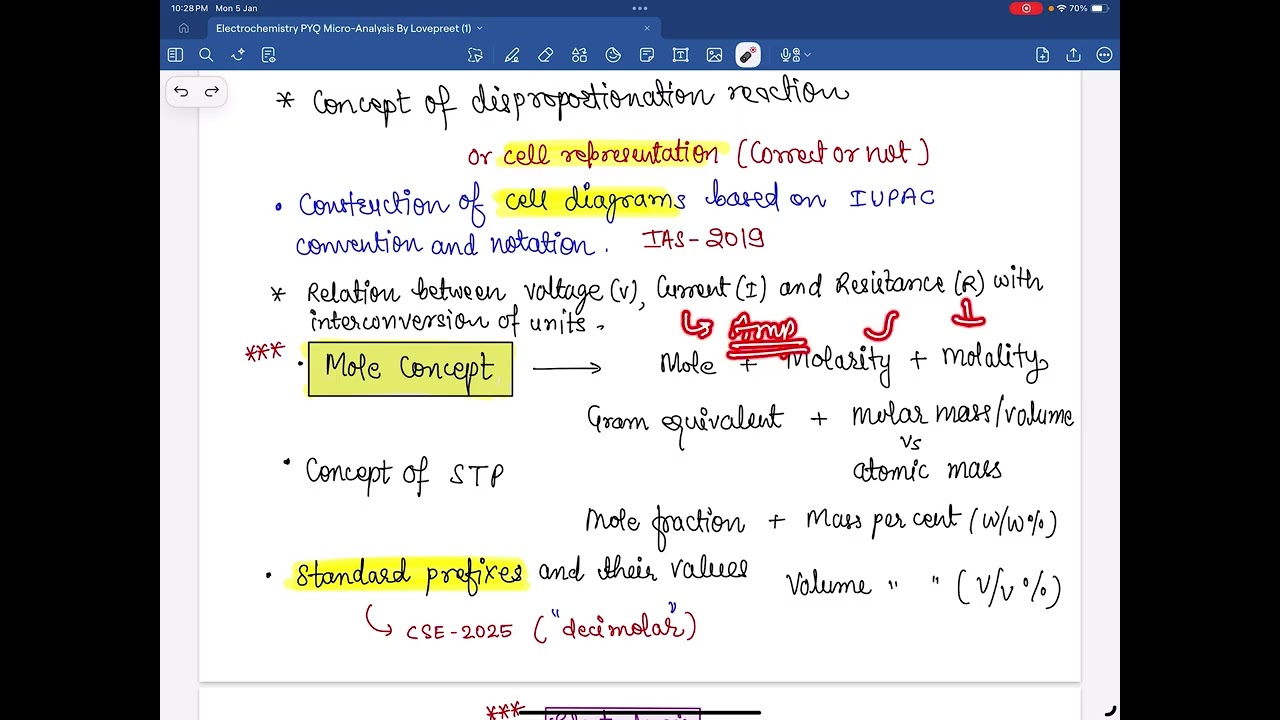 10:28 PM Mon 5 Jan
70%
Electrochemistry PYQ Micro-Analysis By Lovepreet (1)
* Concept of disproportionation reaction
or cell representation (Correct or not)
• Construction of cell diagrams based on IUPAC
convention and notation. IAS-2019
* Relation between voltage (V), Current (I) and Resistance (R) with
interconversion of units.
Amp
*** • Mole Concept → Mole + Molarity + molality
Gram equivalent + molar mass/volume
vs
• Concept of STP
atomic mass
Mole fraction + Mass per cent (W/W%)
• Standard prefixes and their values
Volume " " (V/V%)
CSE-2025 ("decimolar")
***